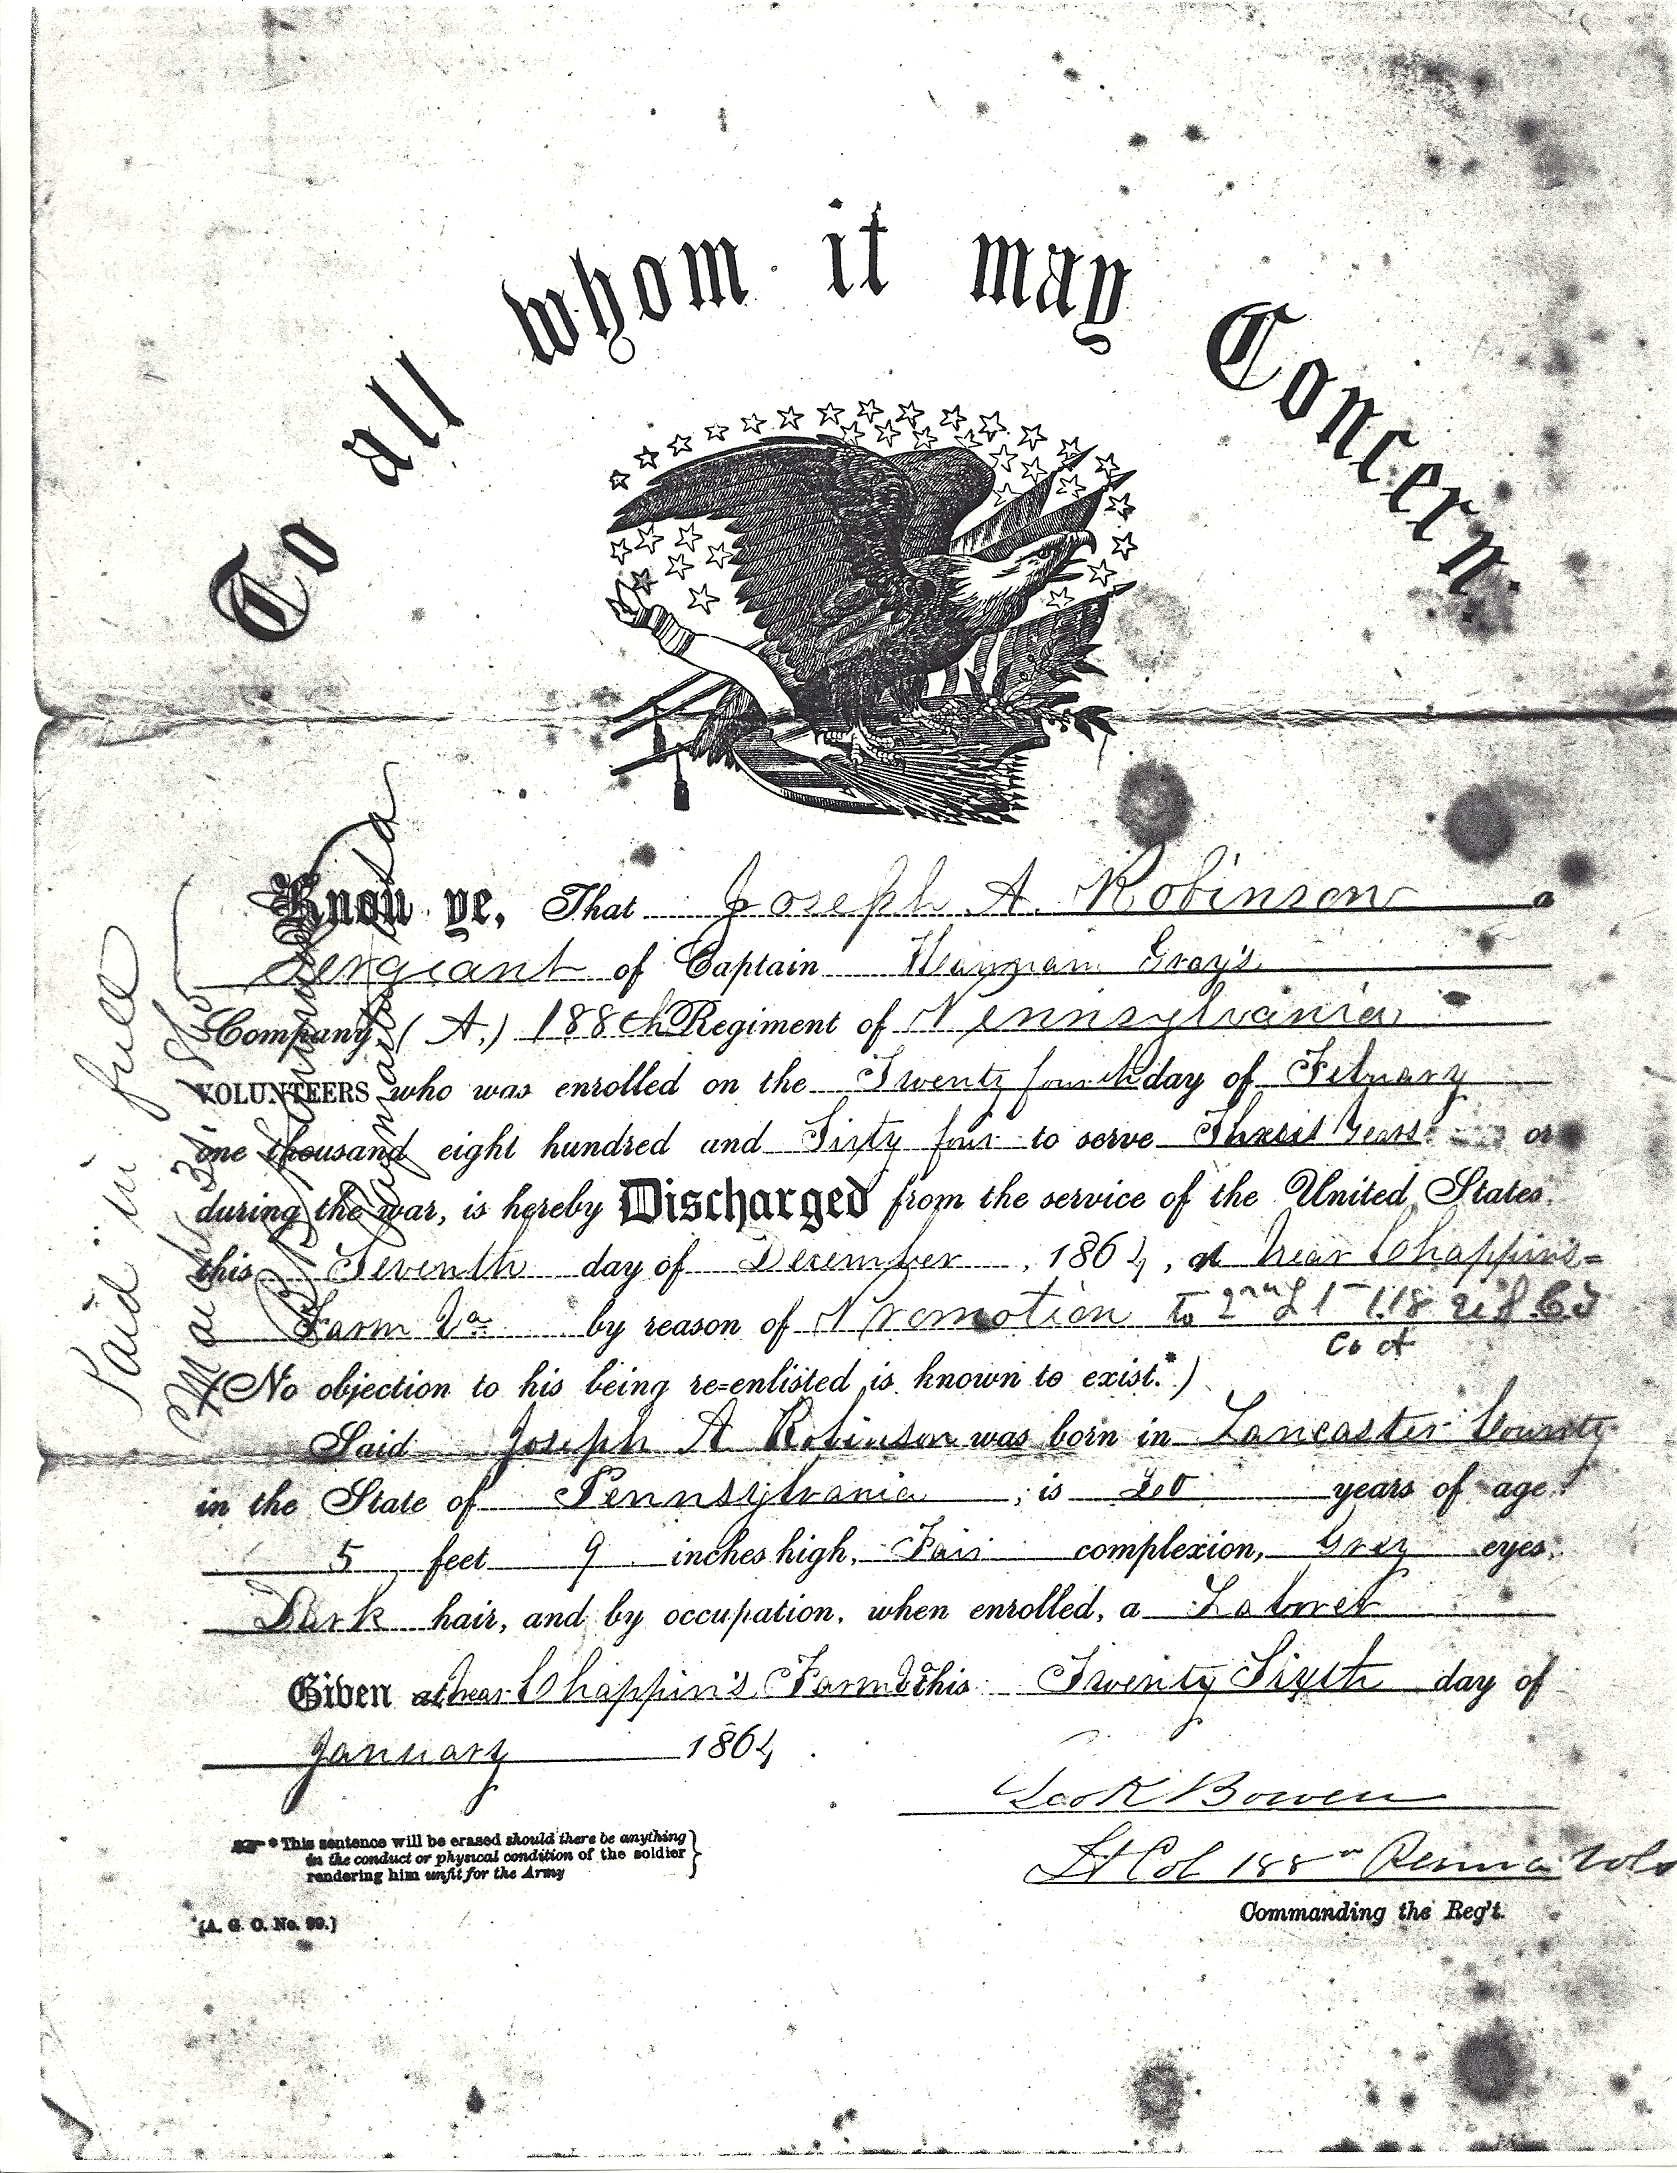 To all whom it may Concern.
Know ye, That Joseph A. Robinson a
Sergeant of Captain Gray's
Company, (A,) 188th Regiment of Pennsylvania
VOLUNTEERS who was enrolled on the Twenty fourth day of Febuary
one thousand eight hundred and Sixty four to serve Three Years or
during the war, is hereby Discharged from the service of the United States
this Seventh day of December, 1864, at near Chappins=
Farm Va by reason of Promotion to 2nd Lt 118 CT
Co A
(No objection to his being re=enlisted is known to exist.*)
Said Joseph A Robinson was born in Lancaster County
in the State of Pennsylvania, is 20 years of age
5 feet 9 inches high, Fair complexion, Gray eyes,
Dark hair, and by occupation, when enrolled, a Laborer
Given at near Chappin's Farm Va this Twenty Sixth day of
January 1864
Bowen
Lt Col 188th Penna Vols
Commanding the Reg't.
* This sentence will be erased should there be anything
in the conduct or physical condition of the soldier
rendering him unfit for the Army
(A. G. O. No. 99.)
Paid in full
March 31
Paymaster